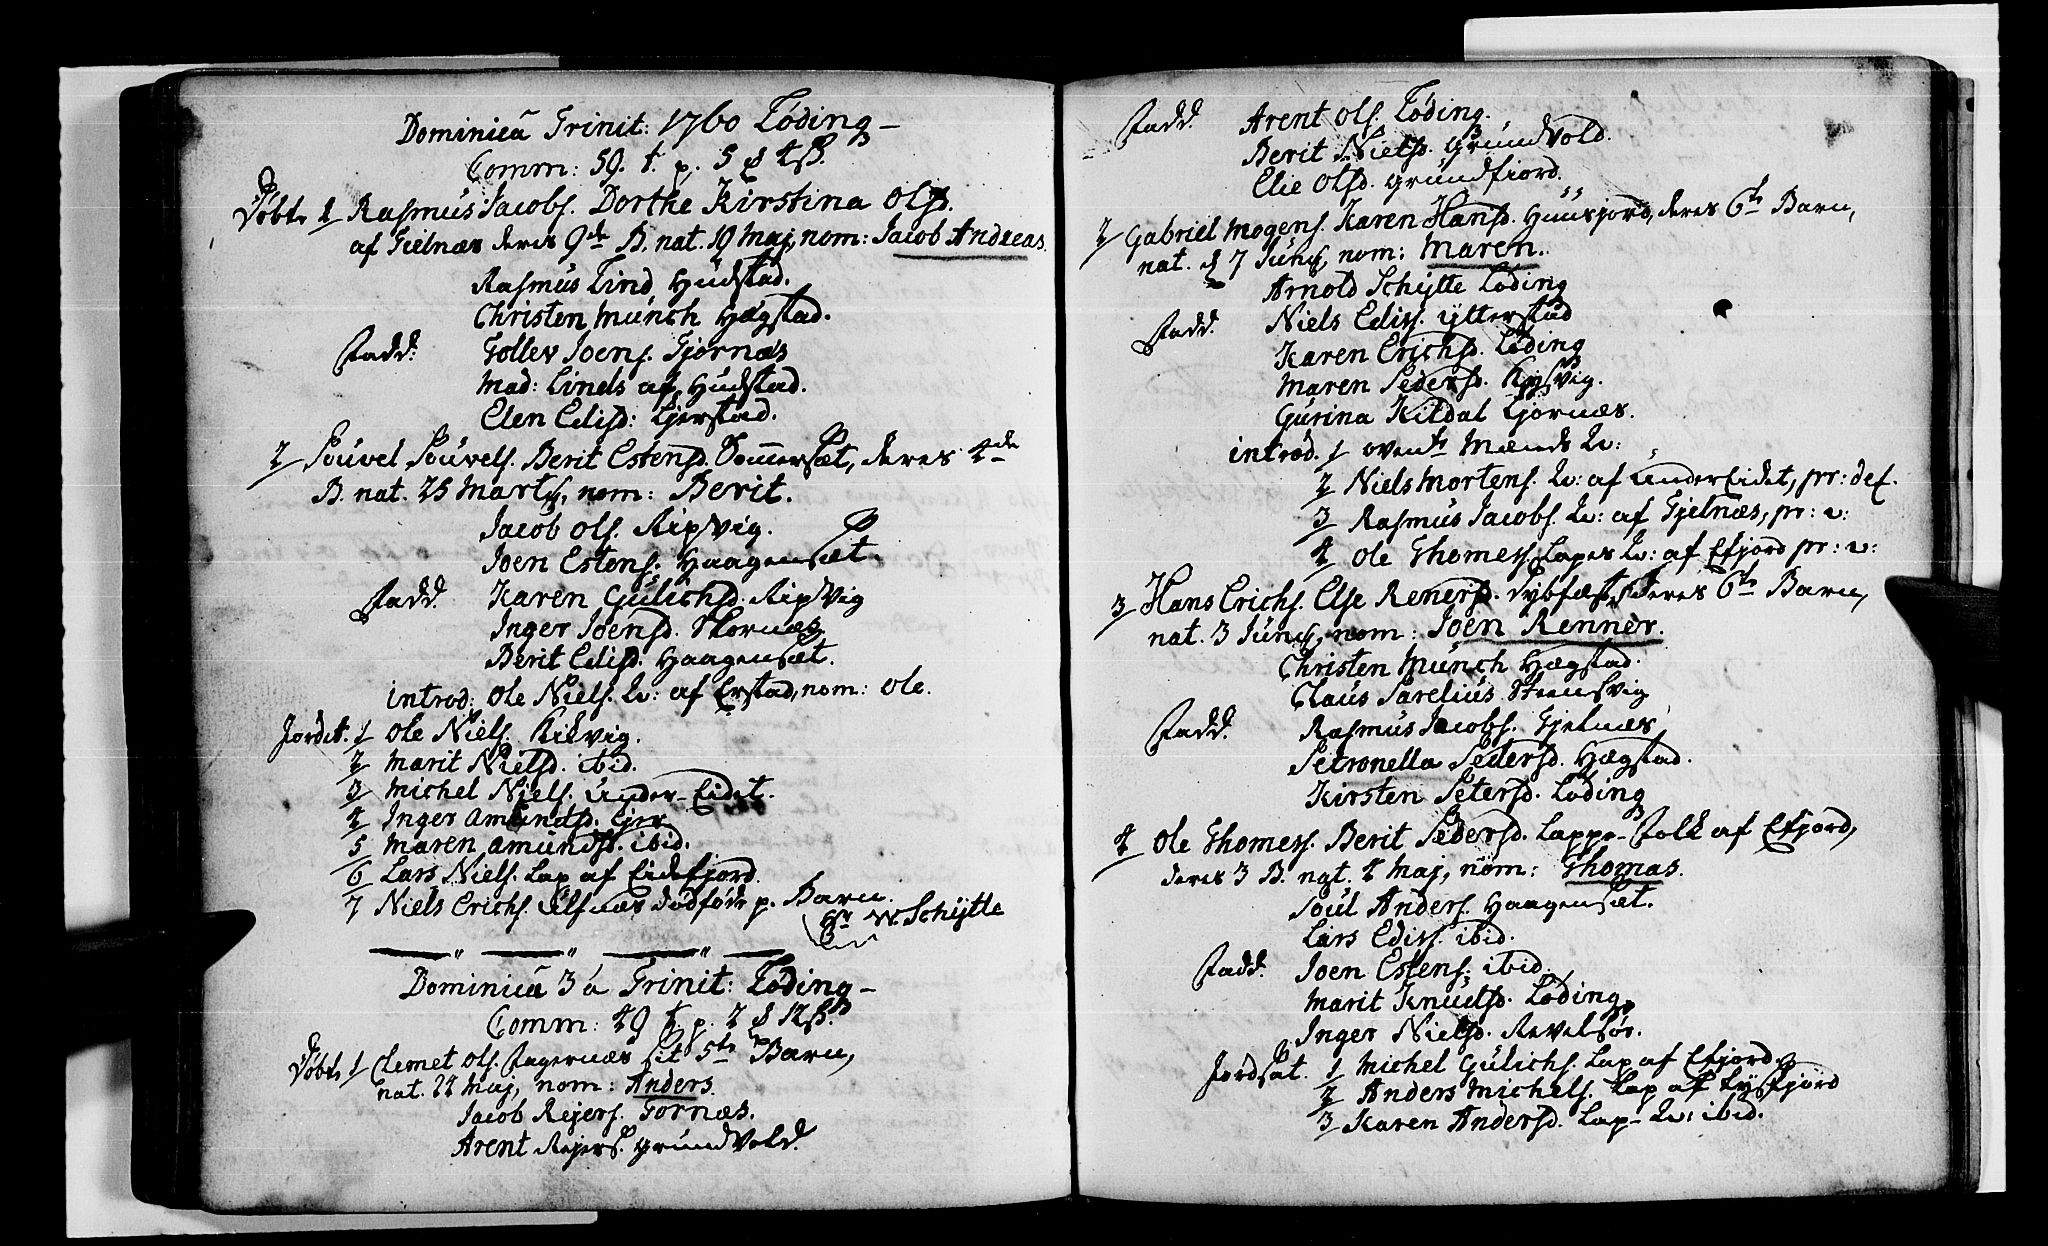 Dominicâ Trinit: 1760 Løding
Comm: 59. t. p. 5
Døbte 1 Rasmus Jacobs. Dorthe Kirstina Olsd.
af Gielnæs deres 9de B. nat. 19 Maj, nom: Jacob Andreas.
Rasmus Lind Hudstad.
Christen Munch Hægstad.
Fadd: Tollev Joens. Tjornæs
Mad: Linds af Hudstad.
Elen Edisd: Ejerstad.
2 Poüvel Poüvels. Berit Estensd. Sommersæt, deres 4de
B. nat. 25 Martij, nom: Berit.
Jacob Ols. Ripvig.
Joen Estens. Haagensæt.
Fadd. Karen Gulichsd. Ripvig
Inger Joensd. Skornæs
Berit Edisd. Haagensæt.
introd: Ole Niels. Q: af Erstad, nom: Ole.
Jordet. 1 Ole Niels. Kilvig.
2 Marit Nielsd. ibid.
3 Michel Niels. Under-Eidet.
4 Inger Amundsd.
5 Maren Amundsd. ibid.
6 Lars Niels. Lap af Eidefjord
7 Niels Erichs. Ulfnæs dødføde p. Barn.
W. Schytte
Dominicâ 3 a Trinit: Løding
Comm: 49 t. p. 2
Døbte 1 Clemet Ols. Fagernæs sit 5te Barn,
nat. 22 Maj, nom: Anders.
Jacob Rejers. Fornæs.
Arent Rejers. Grundvold.
Fadd. Arent Ols. Løding.
Berit Nielsd. Grundvold.
Elie Olsd. Grundfiord.
2 Gabriel Mogens. Karen Hansd. Huusjord, deres 6te Barn,
nat. d 7 Junij, nom: Maren.
Arnold Schytte Løding
Fadd. Niels Edis. Ytterstad
Karen Erichsd. Løding
Maren Pedersd. Kysvig.
Gurina Kildal Tjornæs.
introd. 1 ovente Mands Q:
2 Niels Mortens. Q: af UnderEidet, pr: def.
3 Rasmus Jacobs. Q: af Gjelnæs, pr: v:
4 Ole Thomess. Lapes Q: af Efjord pr: v:
3 Hans Erichs. Else Renersd. Sybfæst, deres 6te Barn,
nat. 3 Junij, nom: Joen Renner.
Christen Munch Hægstad.
Claus Parelius Steensvig
Fadd. Rasmus Jacobs. Gjelnæs
Petronella Pedersd. Hægstad.
Kirsten Petersd. Løding
4 Ole Thomess. Berit Pedersd. Lappe-Folk af Efjord,
deres 3 B. nat. 4 Maj, nom: Thomas.
Poul Anders. Haagensæt.
Lars Edis. ibid.
Fadd. Joen Estens. ibid
Marit Knudsd. Løding
Inger Nielsd. Revelsør.
Jordsat. 1 Michel Gulichs. Lap af Efjord
2 Anders Michels. Lap af Tysfjord
3 Karen Andersd. Lap-Q: ibid.